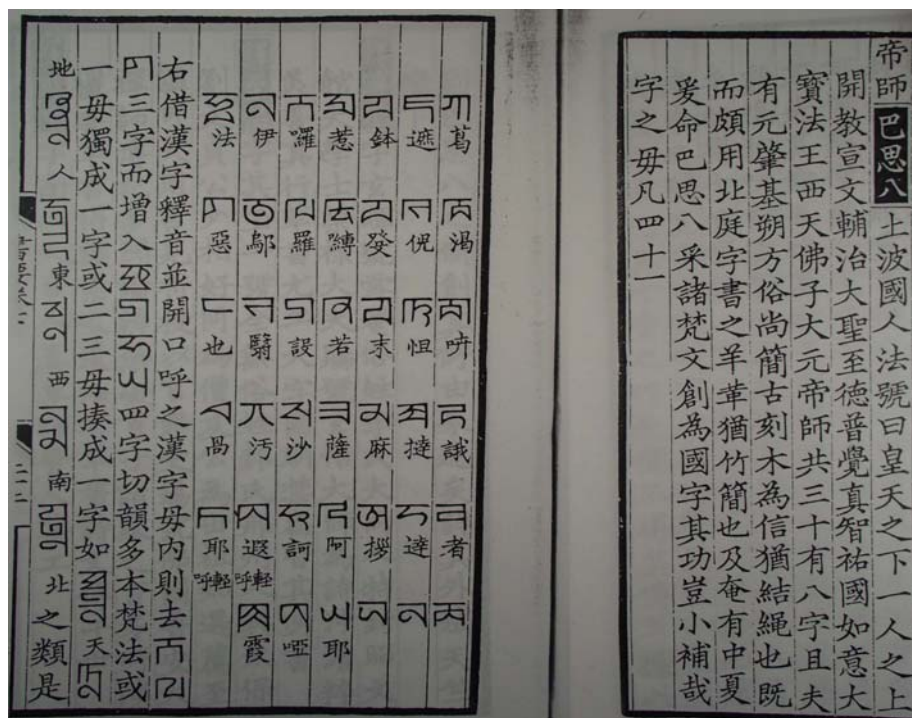 帝師巴思八土波國人法號曰皇天之下一人之上
開教宣文輔治大聖至德普覺真智祐國如意大
寶法王西天佛子大元帝師共三十有八字且夫
有元肇基朔方俗尚簡古刻木為信猶結繩也既
而頗用北庭字書之羊革猶竹簡也及奄有中夏
爰命巴思八采諸梵文創為國字其功豈小補哉
字之毋凡四十一
ꡀ葛 ꡁ渴 ꡂ呏 ꡃ誐 ꡄ者 ꡅ
ꡆ遮 ꡇ倪 ꡈ怛 ꡉ撻 ꡊ達 ꡋ
ꡌ鉢 ꡍ發 ꡎ末 ꡏ麻 ꡐ拶 ꡑ
ꡒ惹 ꡓ嚩 ꡔ若 ꡕ薩 ꡖ阿 ꡗ耶
ꡘ囉 ꡙ羅 ꡚ設 ꡛ沙 ꡜ訶 ꡝ啞
ꡞ伊 ꡟ鄔 ꡠ翳 ꡡ污 ꡢ遐輕呼 ꡣ霞
ꡤ法 ꡥ惡 ꡦ也 ꡧ咼 ꡨ耶輕呼
右借漢字釋音並開口呼之漢字毋內則去
三字而增入 四字切韻多本梵法或
一毋獨成一字或二三毋揍成一字如 天
地 人 東 西 南 北之類是